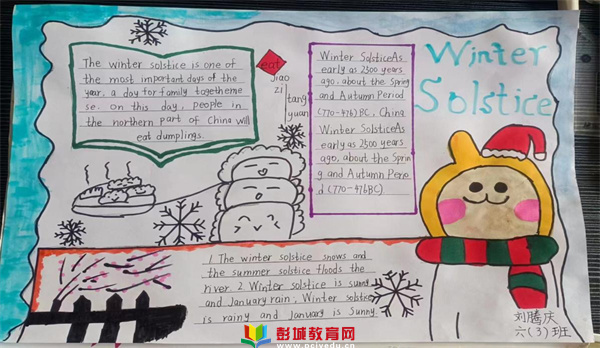 The winter solstice is one of
the most important days of the
year, a day for family togetherne
se. on this day, people in
the northern part of China will
eat dumplings.
eat
jiao
zi
tang
yuan
Winter SolsticeAs
early as 2500 years
ago, about the Spring
and Autumn Period
(770-476)BC, China
Winter SolsticeAs
early as 2500 years
ago, about the Sprin
g and Autumn Perio
d (770-476BC)
Winter
Solstice
1 The winter solstice snows and
the summer solstice floods the
river 2 Winter solstice is sunny
and January rain, Winter solstice
is rainy and January is sunny.
刘腾庆
六(3)班
彭城教育网
www.pcjyedu.cn